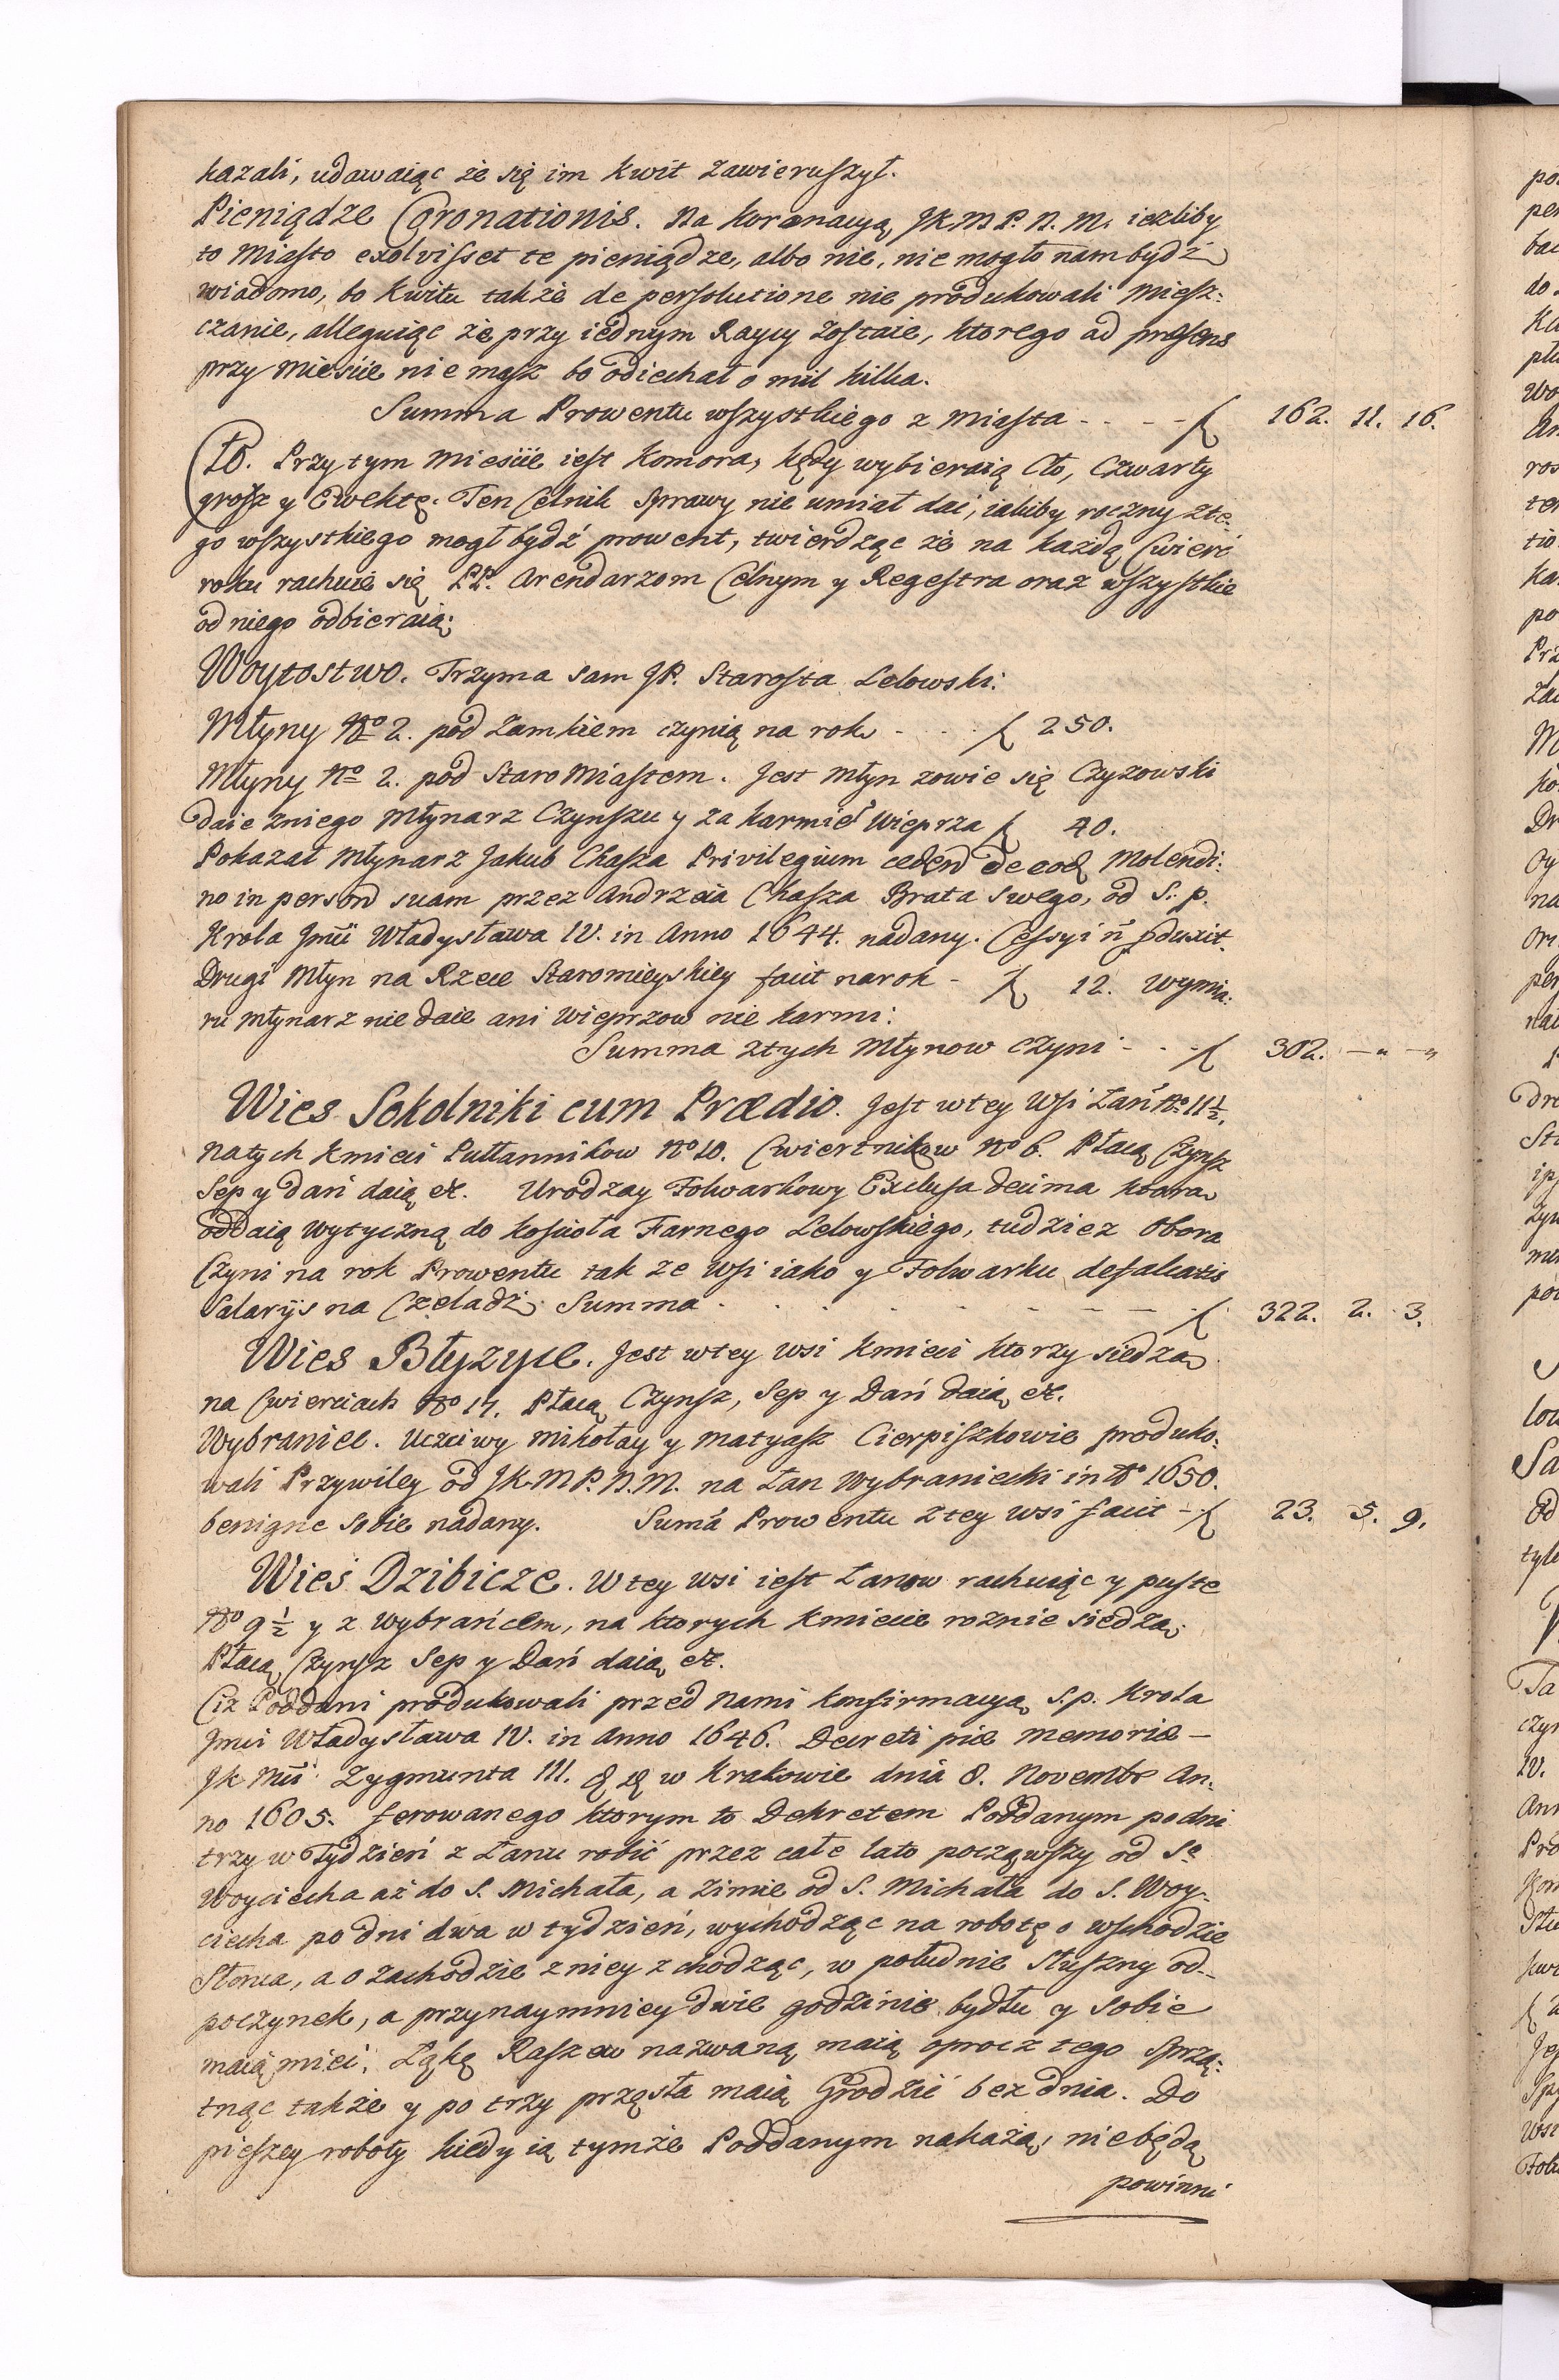 kazali, udawaiąc że się im kwit zawieruszył.
Pieniądze Coronationis. Na koronacyą JKMP.N.M. ieżliby
to Miasto exolvisset te pieniądze, albo nie, nie mogło nam bydź
wiadomo, bo kwitu także de persolutione nie produkowali Miesz:
czanie, alleguiąc że przy iednym Raycy zostaie, ktorego ad præsens
przy Mieście nie masz bo odiechał o mil kilka.
Summa Prowentu wszystkiego z Miasta - - - - f 162. 11. 16.
Przy tym Mieście iest Komora, kędy wybieraią Cło, Czwarty
grosz y Ewektę. Ten Celnik sprawy nie umiał dać, iakiby roczny z te:
go wszystkiego mogł bydź prowent, twierdząc że na każdą Cwierć
roku rachuie się PP. Arendarzom Celnym y Regestra oraz wszystkie
od niego odbieraią:
Woytostwo. Trzyma sam JP. Starosta Lelowski:
Młyny No 2. pod Zamkiem czynią na rok - . . . f 250.
Młyny No 2. pod Staro Miastem. Jest Młyn zowie się Czyzowski
daie z niego Młynarz Czynszu y za karmię Wieprza f 40.
Pokazał Młynarz Jakub Chasza Privilegium de eod Molendi:
no in person suam przez Andrzeia Chasza Brata swego, od S. p.
Krola Jmci Władysława IV. in Anno 1644. nadany. Cessyi ñ pduxit.
Drugi Młyn na Rzece Staromieyskiey facit na rok - f 12. Wymia:
ru Młynarz nie daie ani Wieprzow nie karmi:
Summa z tych Młynow czyni - - - f 302. — " — "
Wies Sokolniki cum Prædio. Jest w tey Wsi Łan No 11 1/2.
Na tych Kmieci Pułłannikow No 10. Cwiertnikow No 6. Płacą Czynsz
Sep y dań daią etc. Urodzay Folwarkowy Exclusa decima ktora
oddaią wytyczną do Kościoła Farnego Lelowskiego, tudziez Obora
Czyni na rok Prowentu tak ze Wsi iako y Folwarku defalcatis
Salarijs na Czeladź. Summa - - - - f 322. 2. 3.
Wies Błyzyce. Jest w tey wsi Kmieci ktorzy siedzą
na Cwierciach No 17. Płacą Czynsz, Sep y Dań daią etc.
Wybraniec. Uczciwy Mikołay y Matyasz Cierpiszkowie produko:
wali Przywiley od JKMP.N.M. na Łan Wybraniecki in Ao 1650.
benigne sobie nadany. Sumā Prowentu z tey wsi facit - f 23. 5. 9.
Wieś Dzibicze. W tey wsi iest Łanow rachuiąc y puste
No 9 1/2 y z wybrańcem, na ktorych Kmiecie roznie siedzą.
Płacą Czynsz Sep y Dań daią etc.
Ciz Poddani produkowali przed Nami konfirmacyą S.p. Krola
Jmci Władysława IV. in Anno 1646. Decreti piæ memoriæ —
Jk Mci Zygmunta III. w Krakowie dnia 8. Novembr An:
no 1605. ferowanego ktorym to Dekretem Poddanym po dni
trzy w Tydzień z Łanu robić przez całe lato począwszy od So
Woyciecha aż do S. Michała, a zimie od S. Michała do S. Woy:
ciecha po dni dwa w tydzień, wychodząc na robotę o wschodzie
Słonca, a o zachodzie z niey z chodząc, w południe Słuszny od:
poczynek, a przynaymniey dwie godzinie bydłu y Sobie
maią mieć. Łąkę Raszew nazwaną maią oprocz tego sprzą:
tnąc także y po trzy przęsła maią Grodzić bez dnia. Do
pieszey roboty kiedy ią tymże Poddanym nakażą, nie będą
powinni